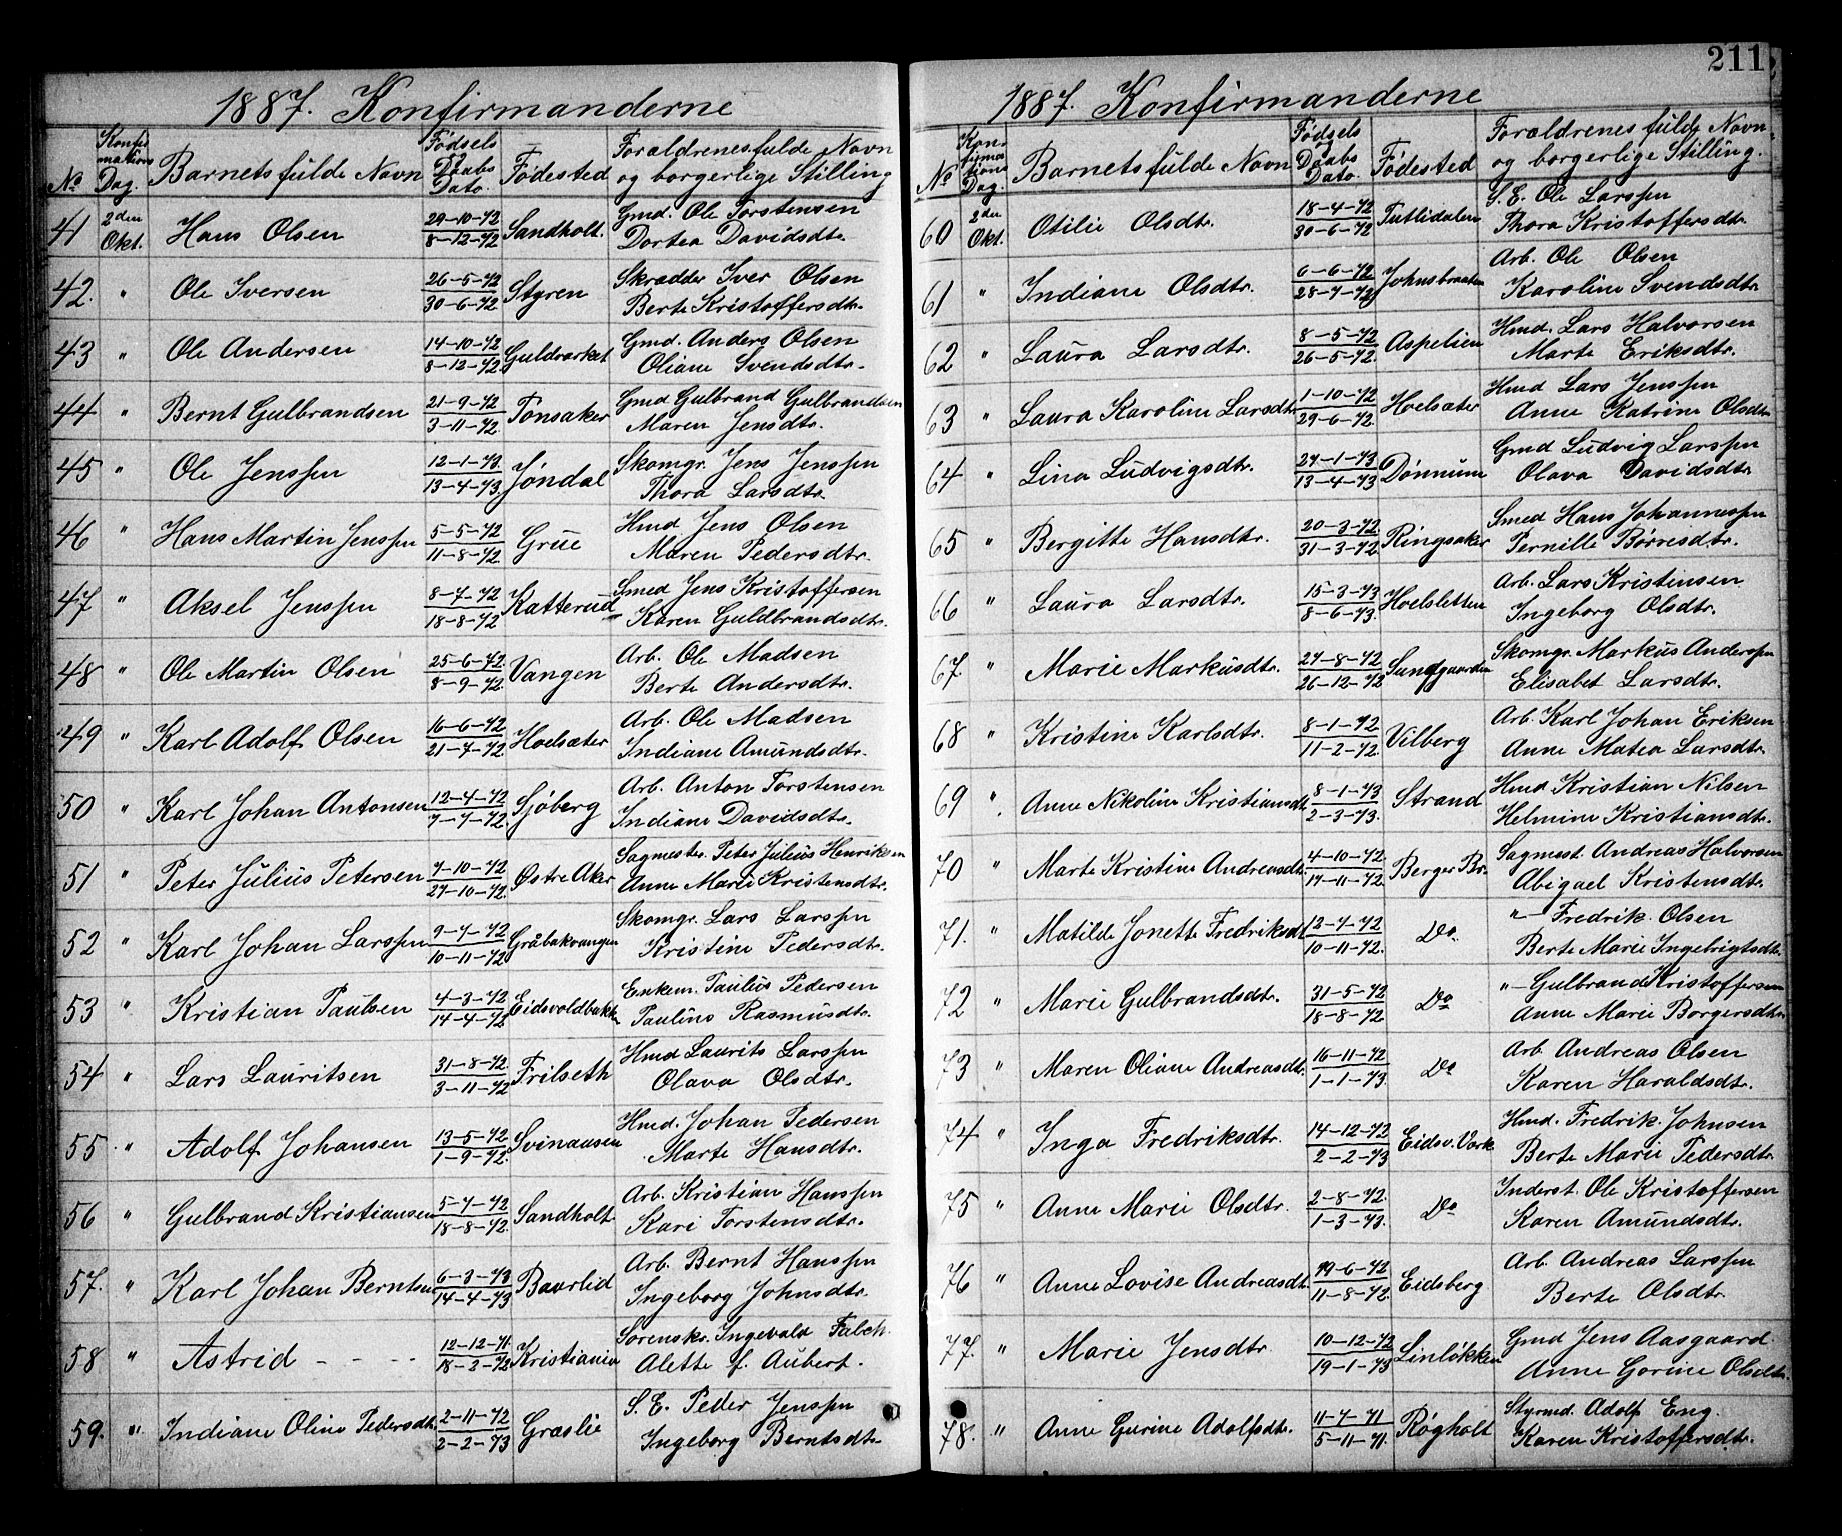 211
1887. Konfirmanderne
No Konfirmations Dag. Barnets fulde Navn Fødsels og Daabs Dato. Fødested Forældrenes fulde Navn og borgerlige Stilling
41 2den Okt. Hans Olsen 29-10-72 8-12-72 Sandholt. Gmd. Ole Torstensen
Dortea Davidsdtr.
42. " Ole Iversen 26-5-72 30-6-72 Styren Skrædder Iver Olsen
Berte Kristoffersdtr.
43 " Ole Andersen 14-10-72 8-12-72 Guldværket Gmd. Anders Olsen
Oliane Svendsdtr.
44 " Bernt Gulbrandsen 21-9-72 3-11-72. Tonsaker Gmd Gulbrand Gulbrandsen
Maren Jensdtr.
45 " Ole Jenssen 12-1-73. 13-4-73. Jøndal Skomgr. Jens Jenssen
Thora Larsdtr.
46 " Hans Martin Jenssen 5-5-72 11-8-72. Grue Hmd Jens Olsen
Maren Pedersdtr.
47 " Aksel Jenssen 8-7-72 18-8-72 Katterud Smed Jens Kristoffersen
Karen Guldbrandsdtr.
48 " Ole Martin Olsen 25-6-72 8-9-72. Vangen Arb. Ole Madsen
Berte Andersdtr.
49 " Karl Adolf Olsen 16-6-72 21-7-72 Hoelsæter Arb. Ole Madsen
Indiane Amundsdtr.
50 " Karl Johan Antonsen 12-4-72 7-7-72. Sjöberg Arb. Anton Torstensen
Indiane Davidsdtr.
51 " Peter Julius Petersen 7-10-72 27-10-72. Østre Aker Sagmester. Peter Julius Henriksen
Anne Marie Kristensdtr.
52 " Karl Johan Larssen 9-7-72 10-11-72 Gråbækvangen Skomgr. Lars Larssen
Kristine Pedersdtr.
53 " Kristian Paulsen 4-3-72 14-4-72 Eidsvoldbakken Enkem. Paulus Pedersen
Pauline Rasmusdtr.
54 " Lars Lauritsen 31-8-72 3-11-72 Frilseth Hmd Laurits Larssen
Olava Olsdtr.
55 " Adolf Johansen 13-5-72 1-9-72. Svinaasen Hmd. Johan Pedersen
Marte Hansdtr.
56 " Gulbrand Kristiansen 5-7-72 18-8-72. Sandholt Arb. Kristian Hanssen
Kari Torstensdtr.
57. " Karl Johan Berntsen 6-3-73 14-4-73 Baarlid Arb. Bernt Hanssen
Ingeborg Johnsdtr.
58 " Astrid - - - - 12-12-71 18-2-72 Kristiania Sorenskr. Ingevald Falch.
Alette f. Aubert.
59. " Indiane Oline Pedersdtr. 2-11-72 2-2-73 Græslie S. E. Peder Jenssen
Ingeborg Berntsdtr.
1887. Konfirmanderne
No Konfirmations Dag. Barnets fulde Navn Fødsels og Daabs Dato. Fødested Forældrenes fulde Navn og borgerlige Stilling.
60 2den Okt. Otilie Olsdtr. 18-4-72 30-6-72 Tutlidalen S. E. Ole Larssen
Thora Kristoffersdtr.
61 " Indiane Olsdtr. 6-6-72 28-7-72 Johnsbraaten Arb. Ole Olsen
Karoline Svendsdtr.
62 " Laura Larsdtr. 8-5-72 26-5-72. Aspelien Hmd. Lars Halvorsen
Marte Eriksdtr.
63 " Laura Karoline Larsdtr 1-10-72 29-6-72. Hoelsæter Hmd Lars Jenssen
Anne Katrine Olsdtr
64 " Lina Ludvigsdtr. 27-1-73 13-4-73 Dønnum Gmd Ludvig Larssen
Olava Davidsdtr.
65 " Bergitte Hansdtr. 20-3-72. 31-3-72. Ringsaker Smed Hans Johannessen
Pernille Børresdtr.
66 " Laura Larsdtr. 15-3-73 8-6-73. Hoelsletten Arb. Lars Kristinsen
Ingeborg Olsdtr.
67. " Marie Markusdtr. 27-8-72 26-12-72 Sundgaarden Skomgr. Markus Anderssen
Elisabet Larsdtr.
68 " Kristine Karlsdtr. 8-1-72 11-2-72. Vilberg Arb. Karl Johan Eriksen
Anne Matea Larsdtr.
69 " Anne Nikoline Kristiansdtr 8-1-73 2-3-73. Strand Hmd Kristian Nilsen
Helmine Kristiansdtr.
70 " Marte Kristine Andreasdtr 4-10-72. 17-11-72. Berger Br. Sagmest. Andreas Halvorsen
Abigael Kristensdtr.
71. " Matilde Jonette Fredriksdtr 12-7-72 10-11-72. Do. "- Fredrik Olsen
Berte Marie Ingebrigtsdtr.
72 " Marie Gulbrandsdtr. 31-5-72 18-8-72. Do "- Gulbrand Kristoffersen
Anne Marie Borgersdtr.
73 " Maren Oliane Andreasdtr. 16-11-72 1-1-73. Do Arb. Andreas Olsen
Karen Haraldsdtr.
74 " Inga Fredriksdtr. 14-12-72 2-2-73 Eidsv. Værk Hmd. Fredrik Johnsen
Berte Marie Pedersdtr.
75 " Anne Marie Olsdtr. 2-8-72. 1-3-73. Do Inderst. Ole Kristoffersen
Karen Amundsdtr.
76 " Anne Lovise Andreasdtr. 19-6-72 11-8-72. Eidsberg Arb. Andreas Larssen
Berte Olsdtr.
77. " Marie Jensdtr. 10-12-72 19-1-73 Linløkken Gmd Jens Aasgaard
Anne Gorine Olsdtr.
78. " Anne Gurine Adolfsdtr. 11-7-71 5-11-71. Røgholt Styrmd. Adolf Eng.
Karen Kristoffersdtr.